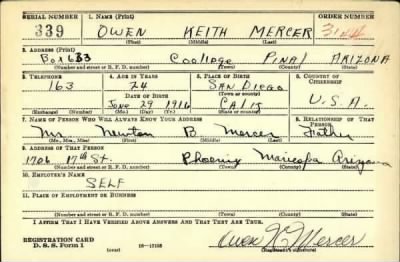 SERIAL NUMBER 1. NAME (Print) ORDER NUMBER
339 OWEN KEITH MERCER
(First) (Middle) (Last)
2. ADDRESS (Print)
Box 633 Coolidge PINAL ARIZONA
(Number and street or R. F. D. number) (Town) (County) (State)
3. TELEPHONE 4. AGE IN YEARS 5. PLACE OF BIRTH 6. COUNTRY OF CITIZENSHIP
163 24 SAN DIEGO
DATE OF BIRTH (Town or county)
June 29 1916 CALIF U.S.A.
(Exchange) (Number) (Mo.) (Day) (Yr.) (State or country)
7. NAME OF PERSON WHO WILL ALWAYS KNOW YOUR ADDRESS 8. RELATIONSHIP OF THAT PERSON
Mr. Newton B Mercer Father
(Mr., Mrs., Miss) (First) (Middle) (Last)
9. ADDRESS OF THAT PERSON
1706 17th St. Phoenix Maricopa Arizona
(Number and street or R. F. D. number) (Town) (County) (State)
10. EMPLOYER'S NAME
SELF
11. PLACE OF EMPLOYMENT OR BUSINESS
(Number and street or R. F. D. number) (Town) (County) (State)
I AFFIRM THAT I HAVE VERIFIED ABOVE ANSWERS AND THAT THEY ARE TRUE.
REGISTRATION CARD
D. S. S. Form 1 Owen K. Mercer
(Registrant's signature)